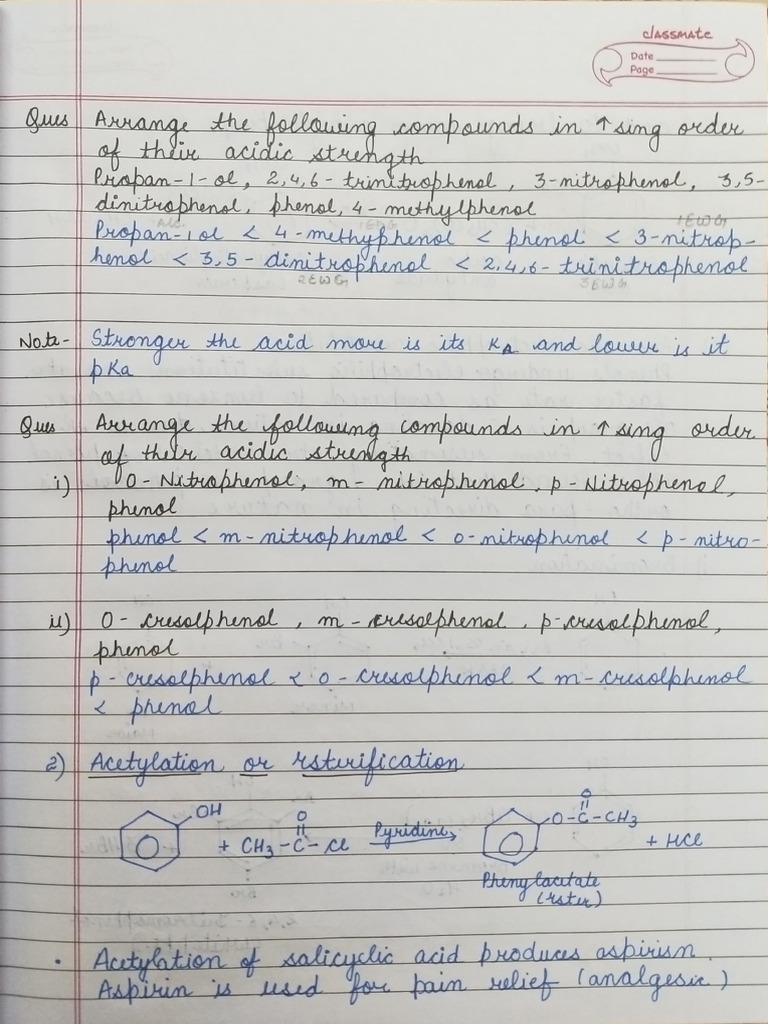 classmate
Date
Page
Ques Arrange the following compounds in ↑sing order
of their acidic strength
Propan-1-ol, 2,4,6-trinitrophenol, 3-nitrophenol, 3,5-
dinitrophenol, phenol, 4-methylphenol
1EWG
Propan-1ol < 4-methyphenol < phenol < 3-nitrop-
henol < 3,5-dinitrophenol < 2,4,6-trinitrophenol
2EWG 3EWG
Note- Stronger the acid more is its KA and lower is it
pKa
Ques Arrange the following compounds in ↑sing order
of their acidic strength
i) O-Nitrophenol, m-nitrophenol, p-Nitrophenol,
phenol
phenol < m-nitrophenol < o-nitrophenol < p-nitro-
phenol
ii) O-cresolphenol, m-cresolphenol, p-cresolphenol,
phenol
p-cresolphenol < o-cresolphenol < m-cresolphenol
< phenol
2) Acetylation or esterification
OH + CH3-C(=O)-Cl Pyridine → O-C(=O)-CH3 + HCl
Phenylacetate
(ester)
• Acetylation of salicyclic acid produces aspirism.
Aspirin is used for pain relief (analgesic)